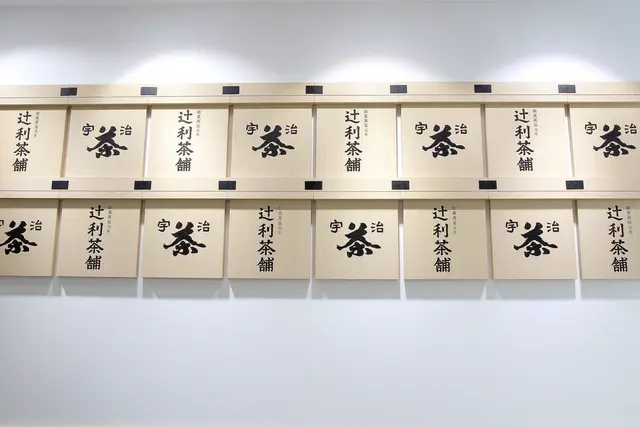 辻利茶舗
宇治
茶
辻利茶舗
宇治
茶
辻利茶舗
宇治
茶
辻利茶舗
宇治
茶
治
茶
辻利茶舗
宇治
茶
辻利茶舗
宇治
茶
辻利茶舗
宇治
茶
辻利茶舗